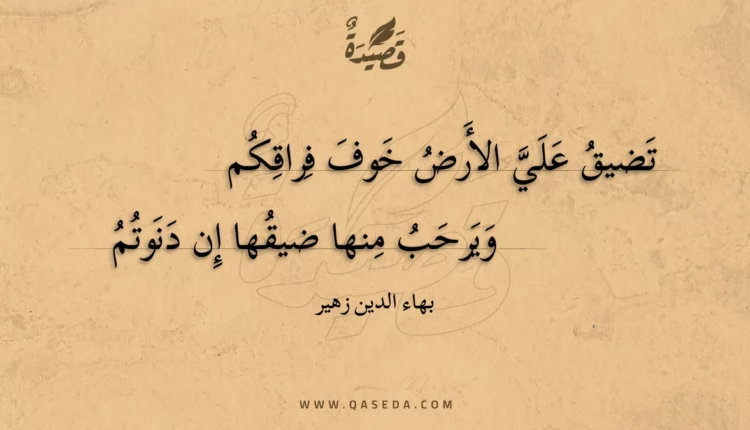 قَصِيْدَةٌ
تَضيقُ عَلَيَّ الأَرضُ خَوفَ فِراقِكُم
وَيَرحَبُ مِنها ضيقُها إِن دَنَوتُمُ
بهاء الدين زهير
WWW.QASEDA.COM